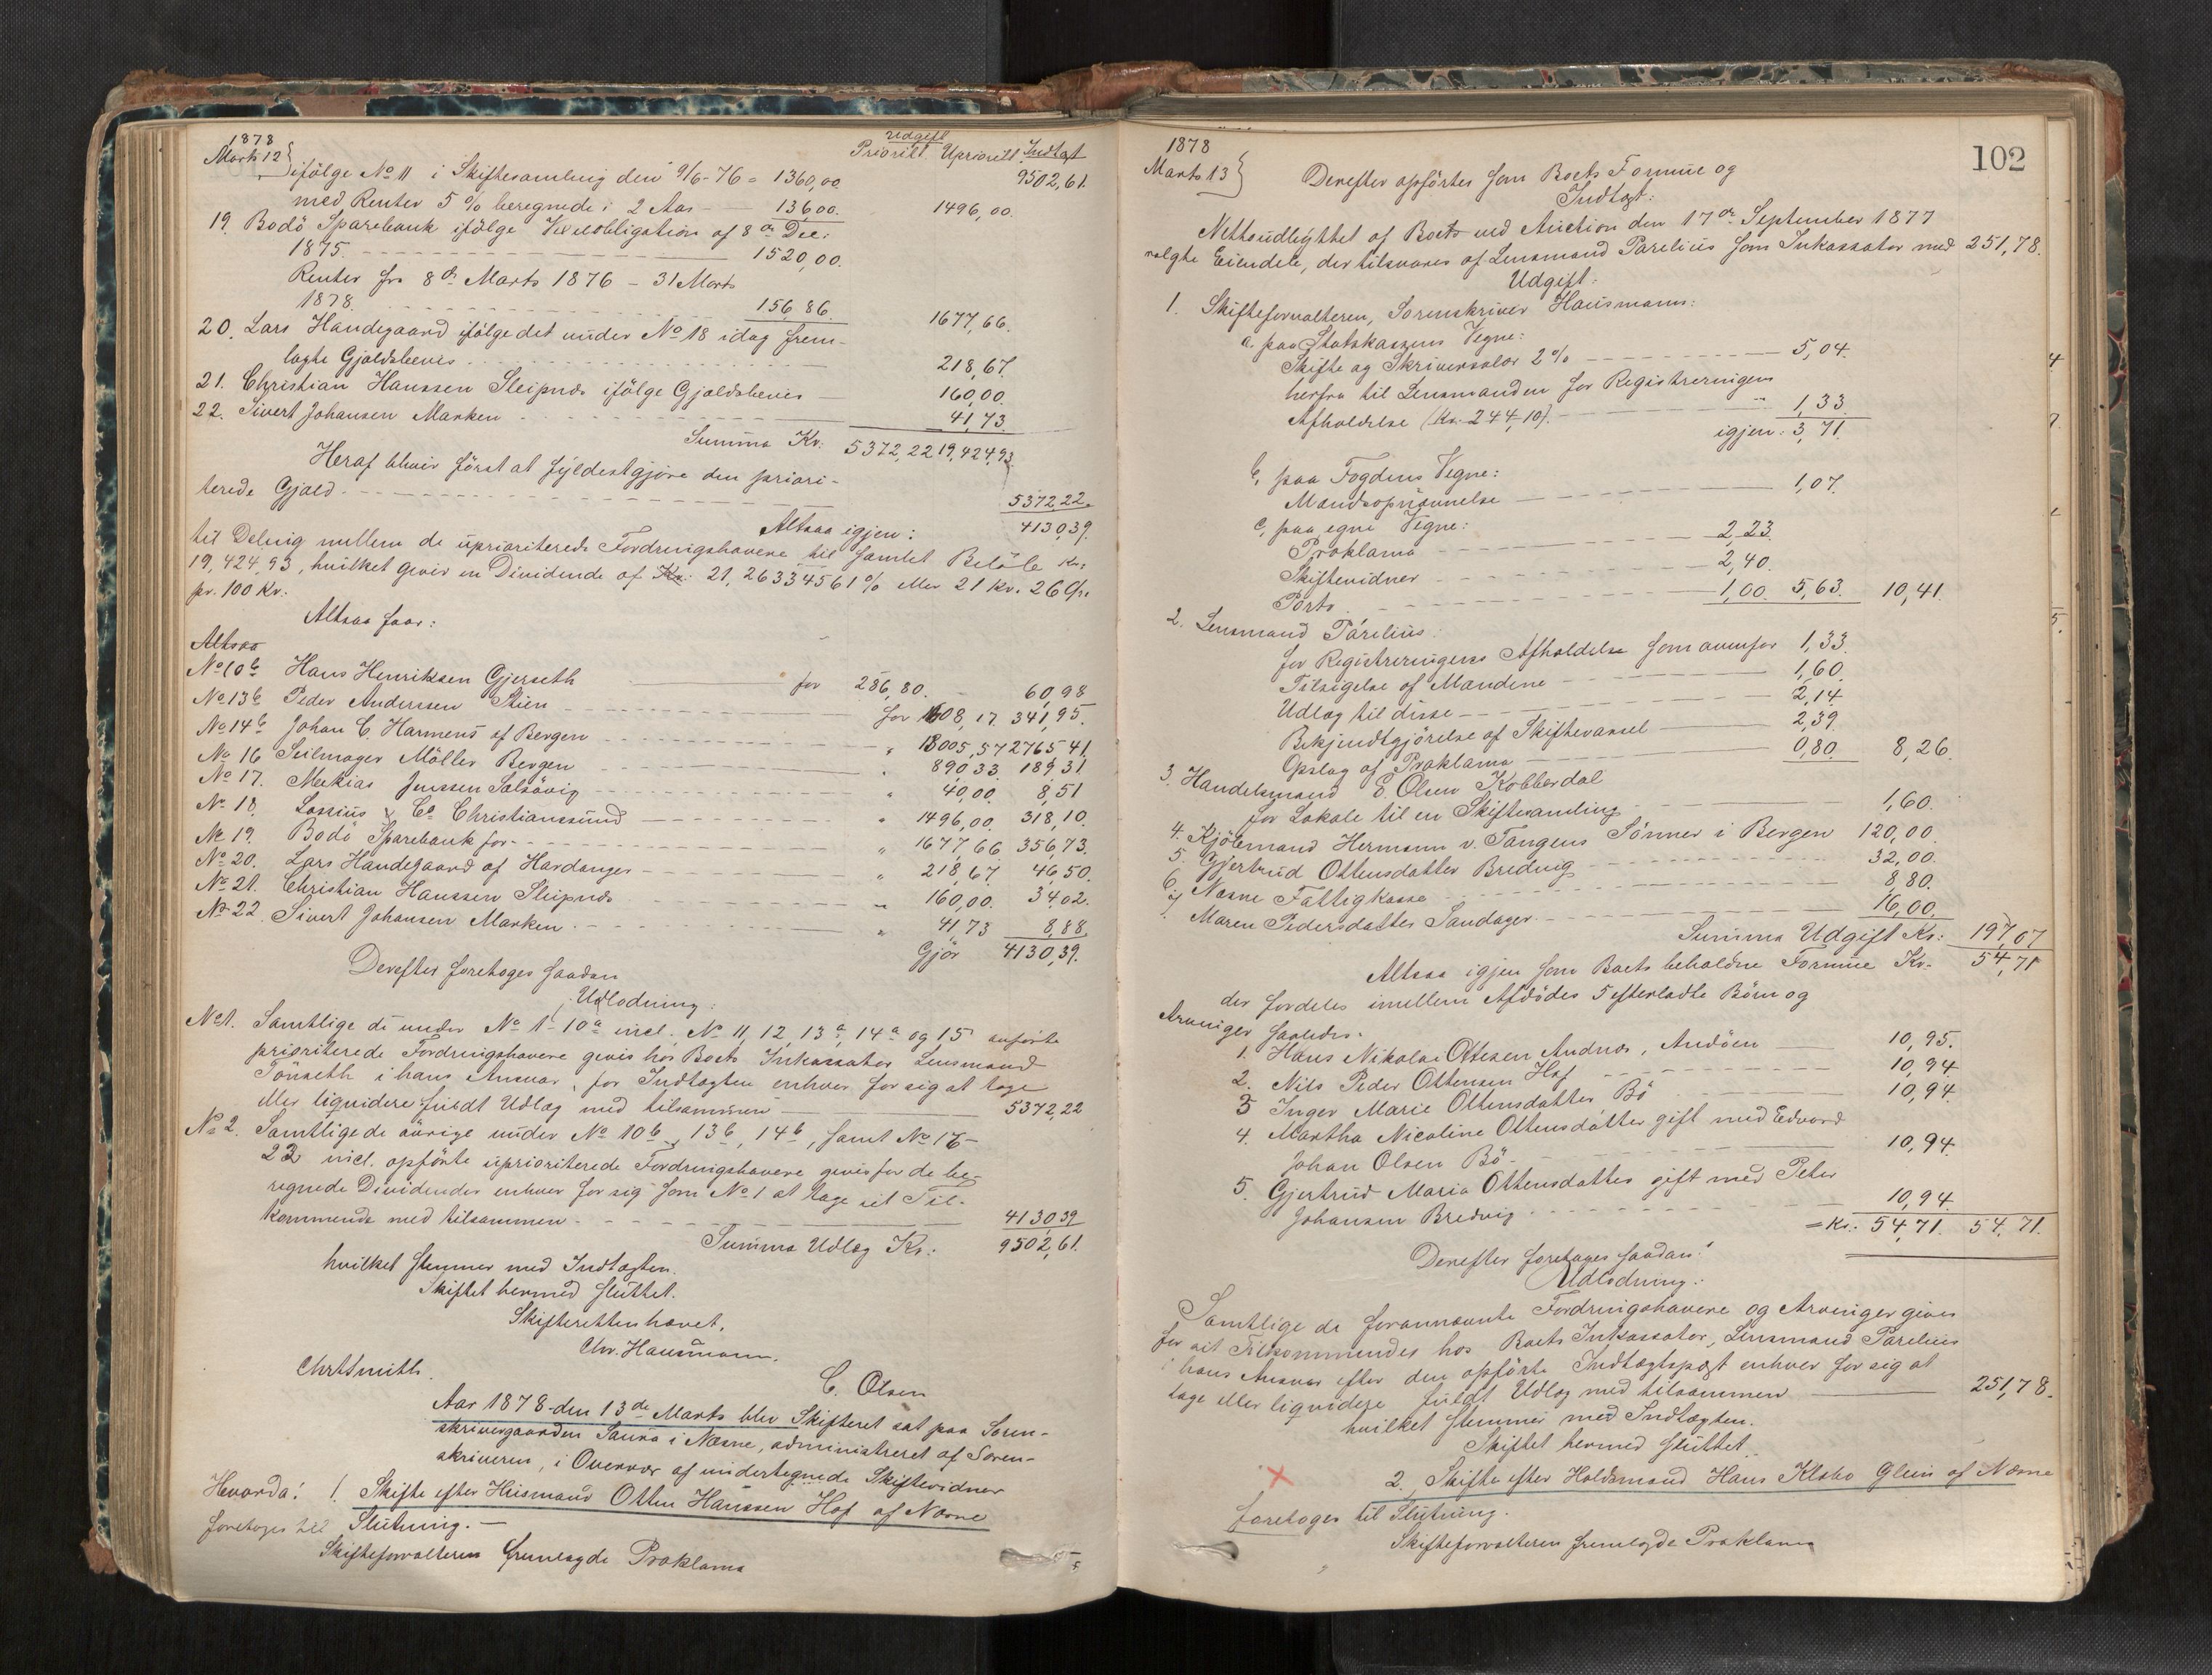 1878
Marts 12
Udgift
Priorit. Upriorit. Indtægt
ifølge No 11 i Skiftesamling den 9/6-76 = 1360,00 9502,61.
med Renter 5 % beregnede i 2 Aar — 136,00. 1496,00.
19. Bodö Sparebank ifølge Vexelobligation af 8de Dec:
1875. 1520,00.
Renter fra 8de Marts 1876 – 31 Marts
1878. 156,86. 1677,66.
20. Lars Handegaard ifølge det under No 18 idag frem-
lagte Gjældsbevis 218,67.
21. Christian Hanssen Sleipnes ifølge Gjældsbevis 160,00.
22. Sivert Johansen Marken 41,73.
Summa Kr: 5372,22 19,424,93
Heraf bliver først at fyldestgjøre den priori-
terede Gjæld. 5372,22.
Altsaa igjen: 4130,39.
til Deling mellem de uprioriterede Fordringshavere til samlet Beløb Kr:
19,424,93, hvilket giver en Dividende af Kr: 21,26334561 % eller 21 Kr. 26 Ør.
pr. 100 Kr.
Altsaa faar:
Altsaa
No 10b Hans Henriksen Gjerseth for 286,80. 60,98
No 13b Peder Andersen Stien for 1608,17. 341,95.
No 14b Johan C. Harmens af Bergen " 13005,57 2765,41.
No 16 Seilmager Möller Bergen " 890,33. 189,31
No 17. Mekias Jenssen Solsövig " 40,00 8,51
No 18. Lossius & Co Christianssund " 1496,00. 318,10.
No 19. Bodö Sparebank for " 1677,66 356,73.
No 20. Lars Handegaard af Hardanger " 218,67 46,50.
No 21. Christian Hanssen Sleipnes " 160,00. 34,02.
No 22. Sivert Johansen Marken. " 41,73 8,88.
Gjør 4130,39.
Derefter foretoges saadan
Udlodning:
No 1. Samtlige de under No 1–10a incl. No 11, 12, 13a, 14a og 15 anførte
prioriterede Fordringshavere gives hos Boets Inkassator Lensmand
Tönseth i hans Ansvar for Indtægten enhver for sig at tage
eller liqvidere fuldt Udlæg med tilsammen 5372,22
No 2. Samtlige de øvrige under No 10b, 13b, 14b, samt No 16–
22 incl. opførte uprioriterede Fordringshavere gives for de be-
regnede Dividender enhver for sig som No 1 at tage sit Til-
kommende med tilsammen 4130,39
Summa Udlæg Kr.: 9502,61.
hvilket stemmer med Indtægten.
Skiftet hermed sluttet.
Skifteretten hævet.
Chr. Hausmann.
Chr Smith.
C. Olsen
Aar 1878 den 13de Marts blev Skifteret sat paa Soren-
skrivergaarden Saura i Næsne, administreret af Soren-
skriveren, i Overvær af undertegnede Skiftevidner
Hvorda: 1. Skifte efter Huismand Otten Hanssen Hof af Næsne
foretoges til Slutning. —
Skifteforvalteren fremlagde Proklama
1878
Marts 13
102
Derefter opførtes som Boets Formue og
Indtægt:
Nettoudbyttet af Boets ved Auction den 17de September 1877
solgte Eiendele, der tilsvares af Lensmand Parelius som Inkassator med 251,78.
Udgift:
1. Skifteforvalteren, Sorenskriver Hausmann:
a. paa Statskassens Vegne:
Skifte og Skriversalær 2 % 5,04.
herfra til Lensmanden for Registreringens
Afholdelse (Kr. 244,10). 1,33
igjen: 3,71.
b, paa Fogdens Vegne:
Mandsopnævnelse 1,07.
c, paa egne Vegne:
Proklama 2,23.
Skiftevidner 2,40.
Porto. 1,00. 5,63. 10,41.
2. Lensmand Parelius:
for Registreringens Afholdelse som ovenfor 1,33.
Tilsigelse af Mændene 1,60.
Udlæg til disse 2,14.
Bekjendtgjørelse af Skiftevarsel 2,39.
Opslag af Proklama 0,80. 8,26.
3. Handelsmand E. Olsen Kobberdal
for Lokale til en Skiftesamling 1,60.
4. Kjöbmand Hermann v. Tangens Sönner i Bergen 120,00.
5. Gjertrud Ottensdatter Bredvig 32,00.
6. Næsne Fattigkasse 8,80.
7. Maren Pedersdatter Sandager. 16,00.
Summa Udgift Kr: 197,07
Altsaa igjen som Boets beholdne Formue Kr. 54,71
der fordeles imellem Afdødes 5 efterladte Börn og
Arvinger saaledes:
1. Hans Nikolai Ottesen Andnæs, Andöen 10,95.
2. Nils Peder Ottensen Hof 10,94.
3 Inger Marie Ottensdatter Bö 10,94.
4. Martha Nicoline Ottensdatter gift med Edvard
Johan Olsen Bö. 10,94.
5. Gjertrud Maria Ottensdatter gift med Peter
Johansen Bredvig. 10,94.
= Kr.: 54,71. 54,71.
Derefter foretoges saadan
Udlodning:
Samtlige de forannævnte Fordringshavere og Arvinger gives
for sit Tilkommendes hos Boets Inkassator, Lensmand Parelius
i hans Ansvar efter den opførte Indtægtspost enhver for sig at
tage eller liqvidere fuldt Udlæg med tilsammen 251,78.
hvilket stemmer med Indtægten.
Skiftet hermed sluttet.
2. Skifte efter Holdsmand Hans Klabo Glein af Næsne
foretoges til Slutning.
Skifteforvalteren fremlagde Proklama